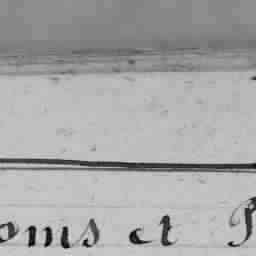 oms et P